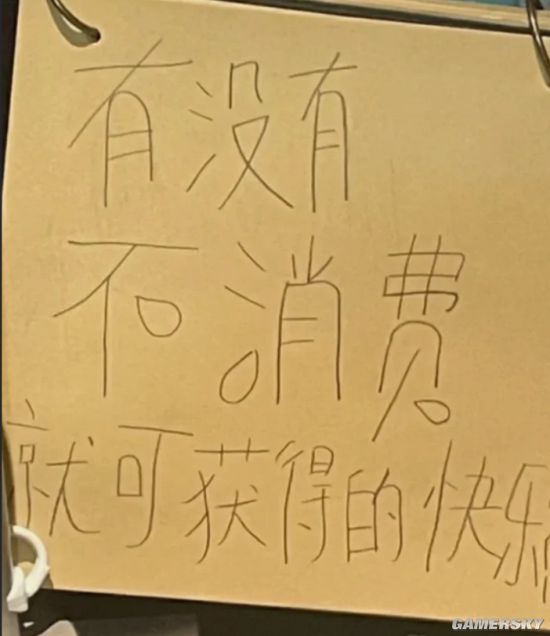 有没有
不消费
就可获得的快乐
GAMERSKY